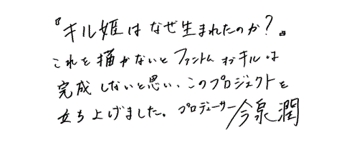 『キル姫はなぜ生まれたのか？』
これを描かないとファントム オブ キルは
完成しないと思い、このプロジェクトを
立ち上げました。プロデューサー 今泉潤